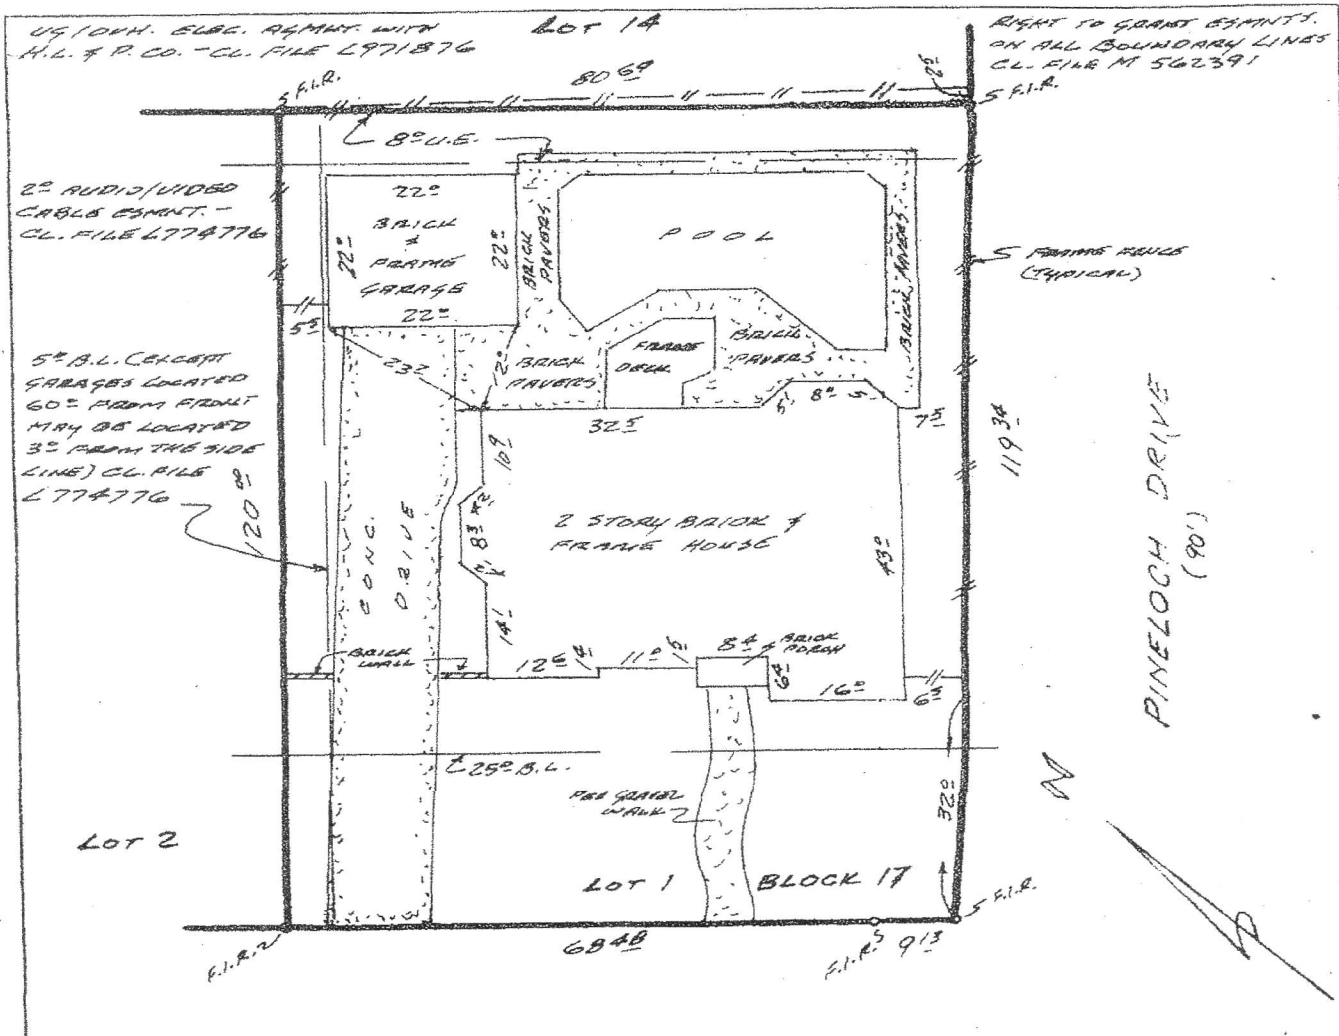 UG/OVH. ELEC. AGMNT. WITH
H.L. & P. CO. - CL. FILE L971876
LOT 14
RIGHT TO GRANT ESMNTS.
ON ALL BOUNDARY LINES
CL. FILE M 562391
F.I.R.
80 69
2 5
F.I.R.
8 0 U.E.
2 0 AUDIO/VIDEO
CABLE ESMNT. -
CL. FILE L774776
22 0
BRICK
&
FRAME
GARAGE
22 0
22 0
22 0
BRICK
PAVERS
POOL
BRICK PAVERS
FRAME FENCE
(TYPICAL)
5 5
5 0 B.L. (EXCEPT
GARAGES LOCATED
60 0 FROM FRONT
MAY BE LOCATED
3 0 FROM THE SIDE
LINE) CL. FILE
L774776
232
12 0
BRICK
PAVERS
FRAME
DECK
BRICK
PAVERS
32 5
5'
8 0
5'
7 5
119 34
PINELOCH DRIVE
(90')
120 00
CONC.
DRIVE
10 9
8 3
14 1
2 STORY BRICK &
FRAME HOUSE
43 0
BRICK
WALL
12 6
1 4
11 0
1 5
8 4
BRICK
PORCH
6 4
16 0
6 5
25 0 B.L.
PEA GRAVEL
WALK
32 0
N
LOT 2
LOT 1
BLOCK 17
F.I.R.
F.I.R.
68 48
F.I.R.
9 13